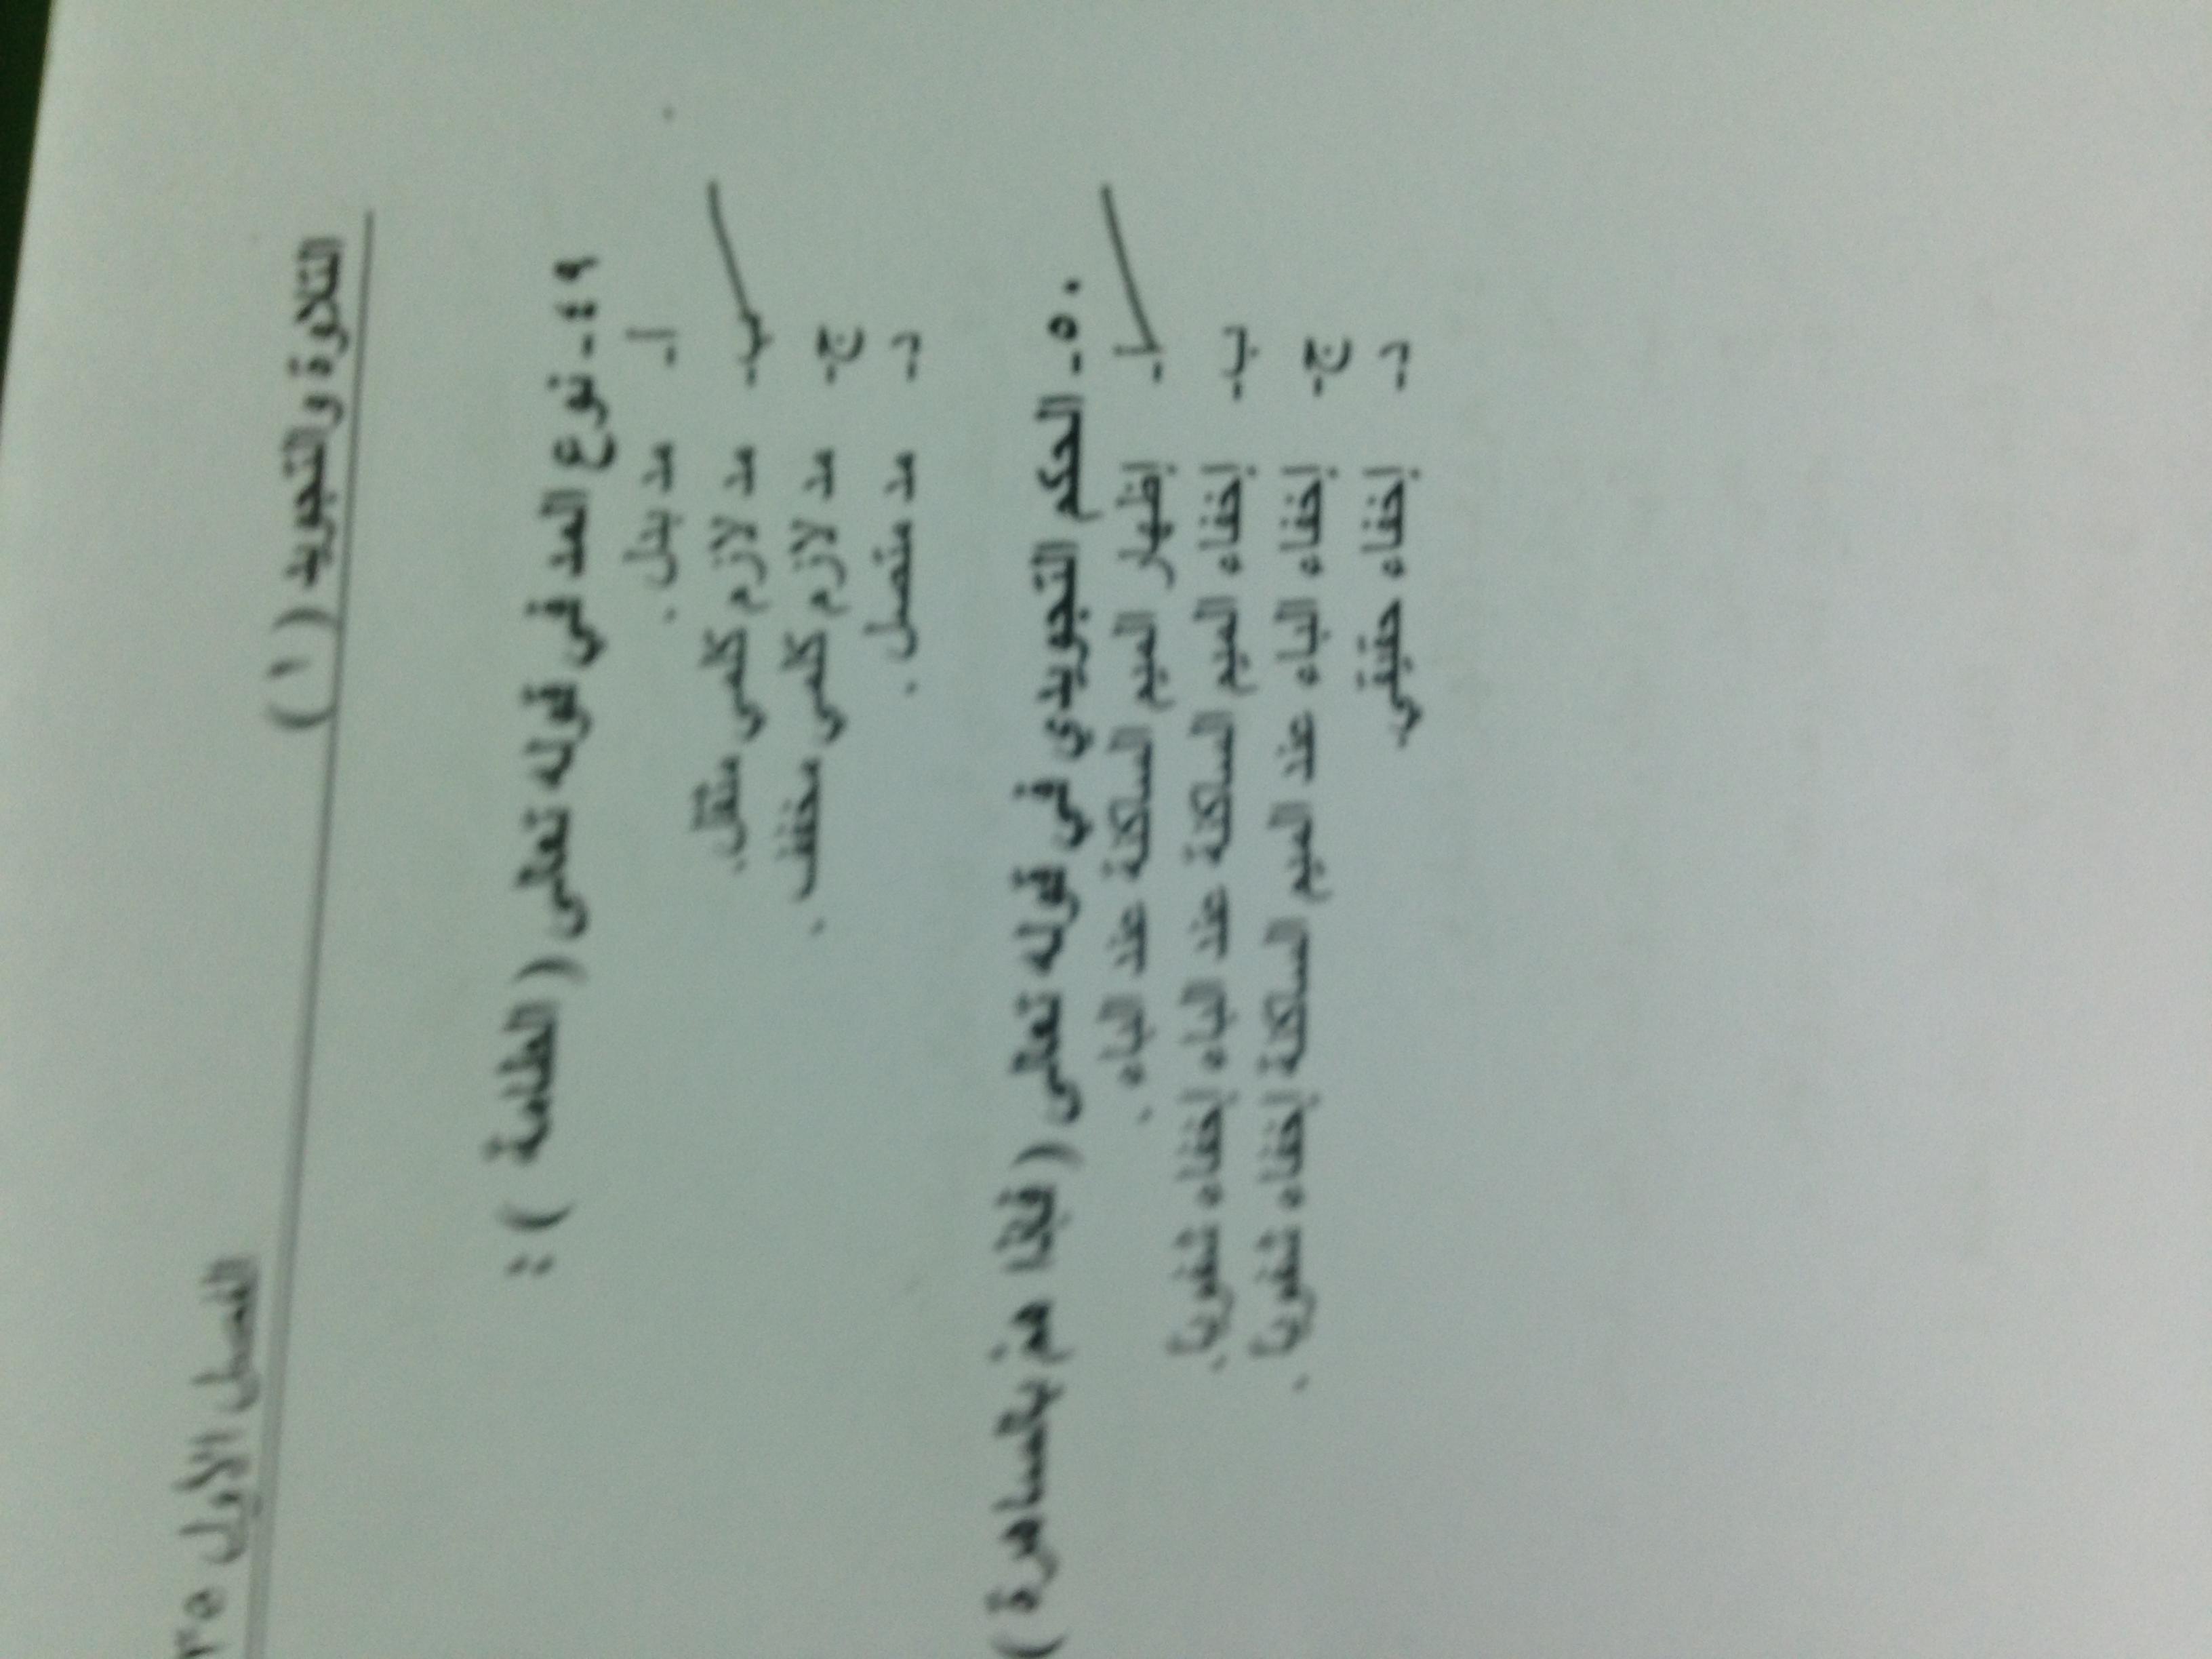 التلاوة والتجويد ( ١ )
الفصل الأول
٤٩- نوع المد في قوله تعالى ( الطامة ) :
أ- مد بدل .
ب- مد لازم كلمي مثقل.
ج- مد لازم كلمي مخفف .
د- مد متصل .
٥٠- الحكم التجويدي في قوله تعالى ( فإذا هم بالساهرة )
أ- إظهار الميم الساكنة عند الباء .
ب- إخفاء الميم الساكنة عند الباء إخفاء شفوياً.
ج- إخفاء الباء عند الميم الساكنة إخفاء شفوياً .
د- إخفاء حقيقي.